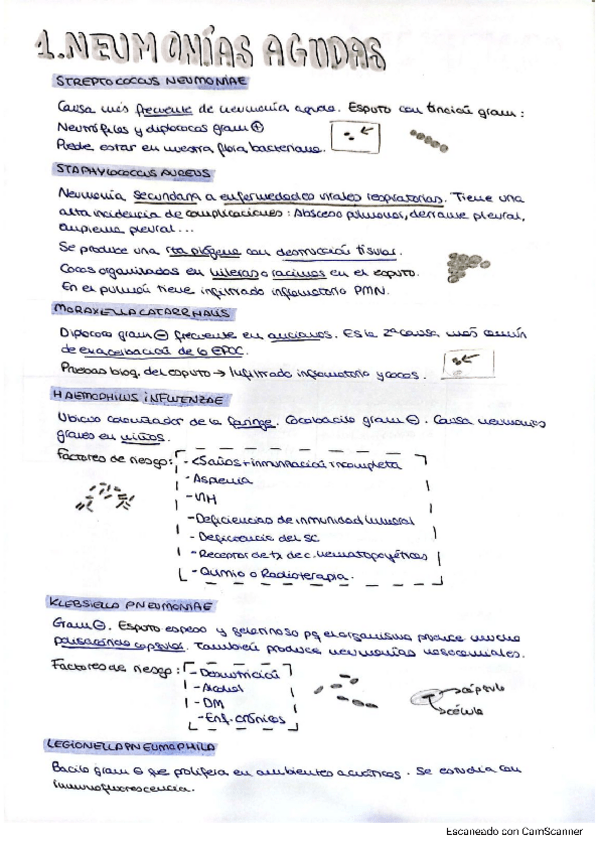 1. NEUMONÍAS AGUDAS
STREPTOCOCCUS NEUMONIAE
Causa más frecuente de neumonía aguda. Esputo con tinción gram:
Neutrófilos y diplococos gram ⊕
Puede estar en nuestra flora bacteriana.
STAPHYLOCOCCUS AUREUS
Neumonía secundaria a enfermedades virales respiratorias. Tiene una
alta incidencia de complicaciones: Absceso pulmonar, derrame pleural,
empiema pleural...
Se produce una rta piógena con destrucción tisular.
Cocos organizados en hileras o racimos en el esputo.
En el pulmón tiene infiltrado inflamatorio PMN.
MORAXELLA CATARRHALIS
Diplococo gram ⊖ frecuente en ancianos. Es la 2ª causa más común
de exacerbación de la EPOC.
Pruebas bioq. del esputo → Infiltrado inflamatorio y cocos.
HAEMOPHILUS INFLUENZAE
Ubicuo colonizador de la faringe. Cocobacilo gram ⊖. Causa neumonías
graves en niños.
Factores de riesgo:
- <5años + inmunización incompleta
- Asplenia
- VIH
- Deficiencias de inmunidad humoral
- Deficiencia del SC
- Receptor de tx de c. hematopoyéticas
- Quimio o Radioterapia.
KLEBSIELLA PNEUMONIAE
Gram ⊖. Esputo espeso y gelatinoso pq el organismo produce mucho
polisacárido capsular. También produce neumonías nosocomiales.
Factores de riesgo:
- Desnutrición
- Alcohol
- DM
- Enf. crónicas
cápsula
célula
LEGIONELLA PNEUMOPHILA
Bacilo gram ⊖ que prolifera en ambientes acuáticos. Se estudia con
inmunofluorescencia.
Escaneado con CamScanner